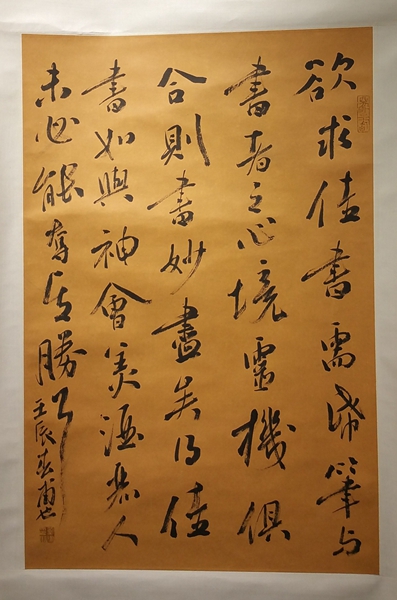 欲求佳書需帋筆与
書者之心境靈機俱
合則書妙盡矣得佳
書如與神會美酒人
未必能奪勝
壬辰春